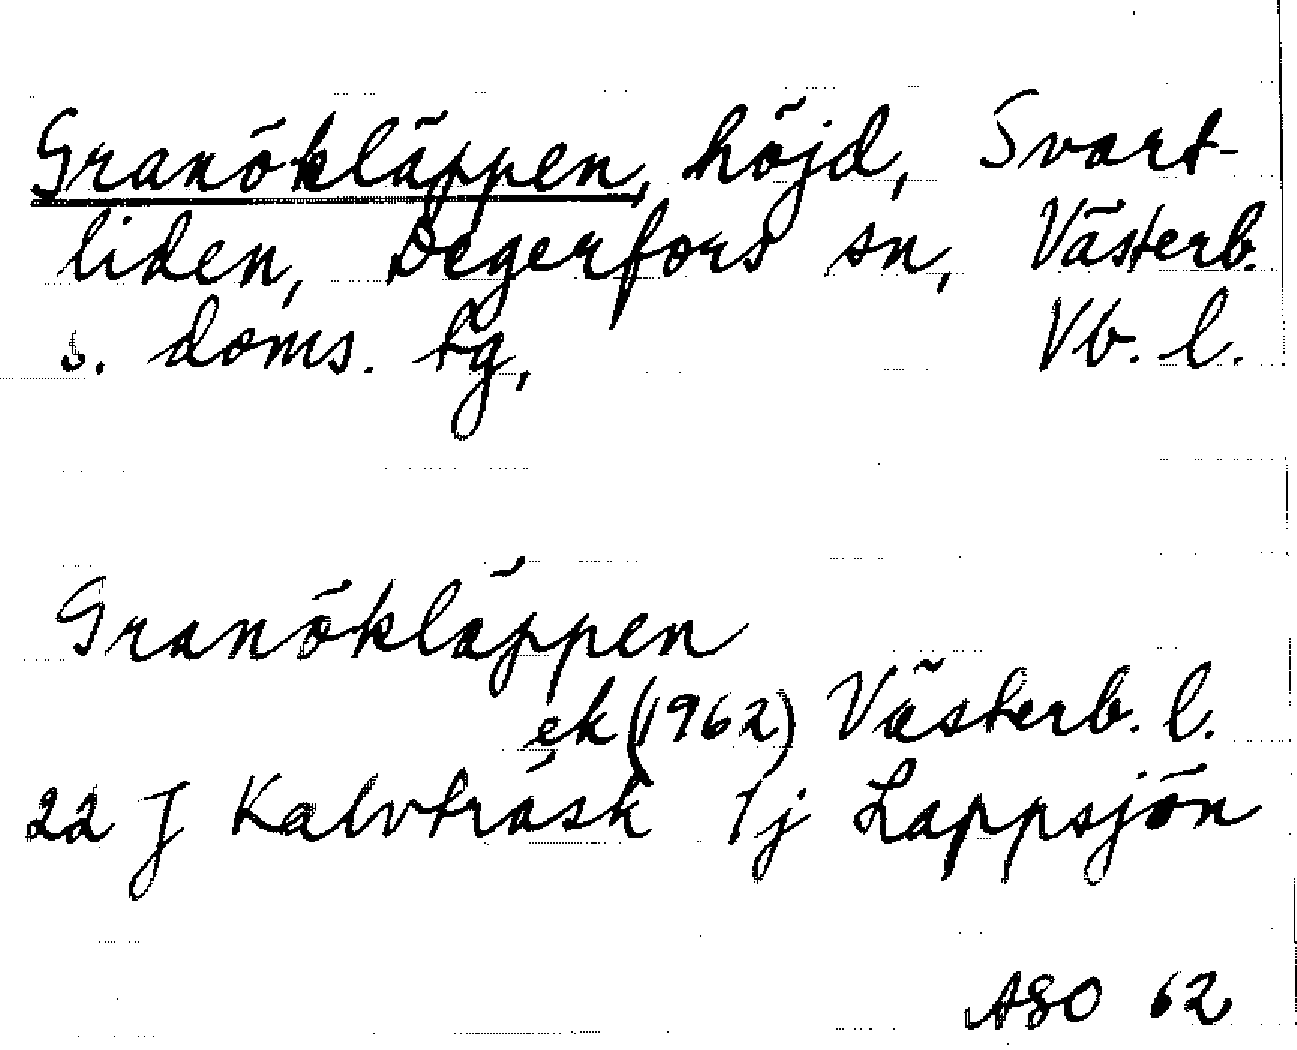 Granökläppen, höjd, Svart-
liden, Degerfors sn, Västerb.
s. doms. tg, Vb. l.
Granökläppen
ek (1962) Västerb. l.
22 J Kalvträsk 1j Lappsjön
ASO 62